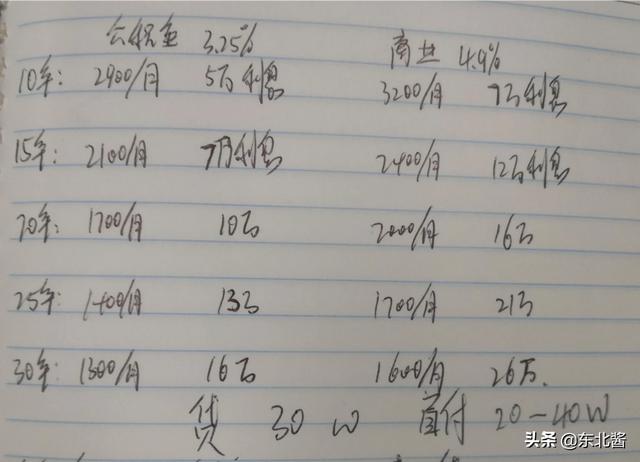 公积金 3.25% 商业 4.9%
10年: 2900/月 5万利息 3200/月 9万利息
15年: 2100/月 7万利息 2400/月 12万利息
20年: 1700/月 10万 2000/月 16万
25年: 1400/月 13万 1700/月 21万
30年: 1300/月 16万 1600/月 26万.
贷 30w 首付 20-40W
头条 @东北酱